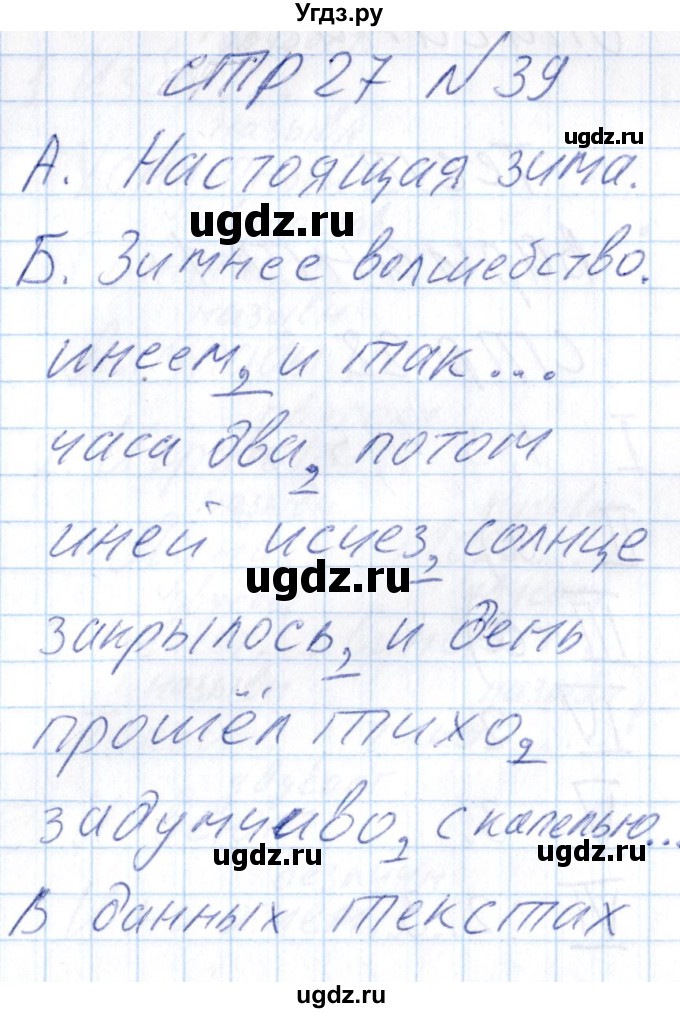 Угдз.ру
стр 27 №39
ugdz.ru
А. Настоящая зима.
ugdz.ru
Б. Зимнее волшебство.
инеем, и так...
часа два, потом
иней исчез, солнце
ugdz.ru
закрылось, и день
прошёл тихо,
задумчиво, с капелью...
ugdz.ru
ugdz.ru
В данных текстах
ugdz.ru